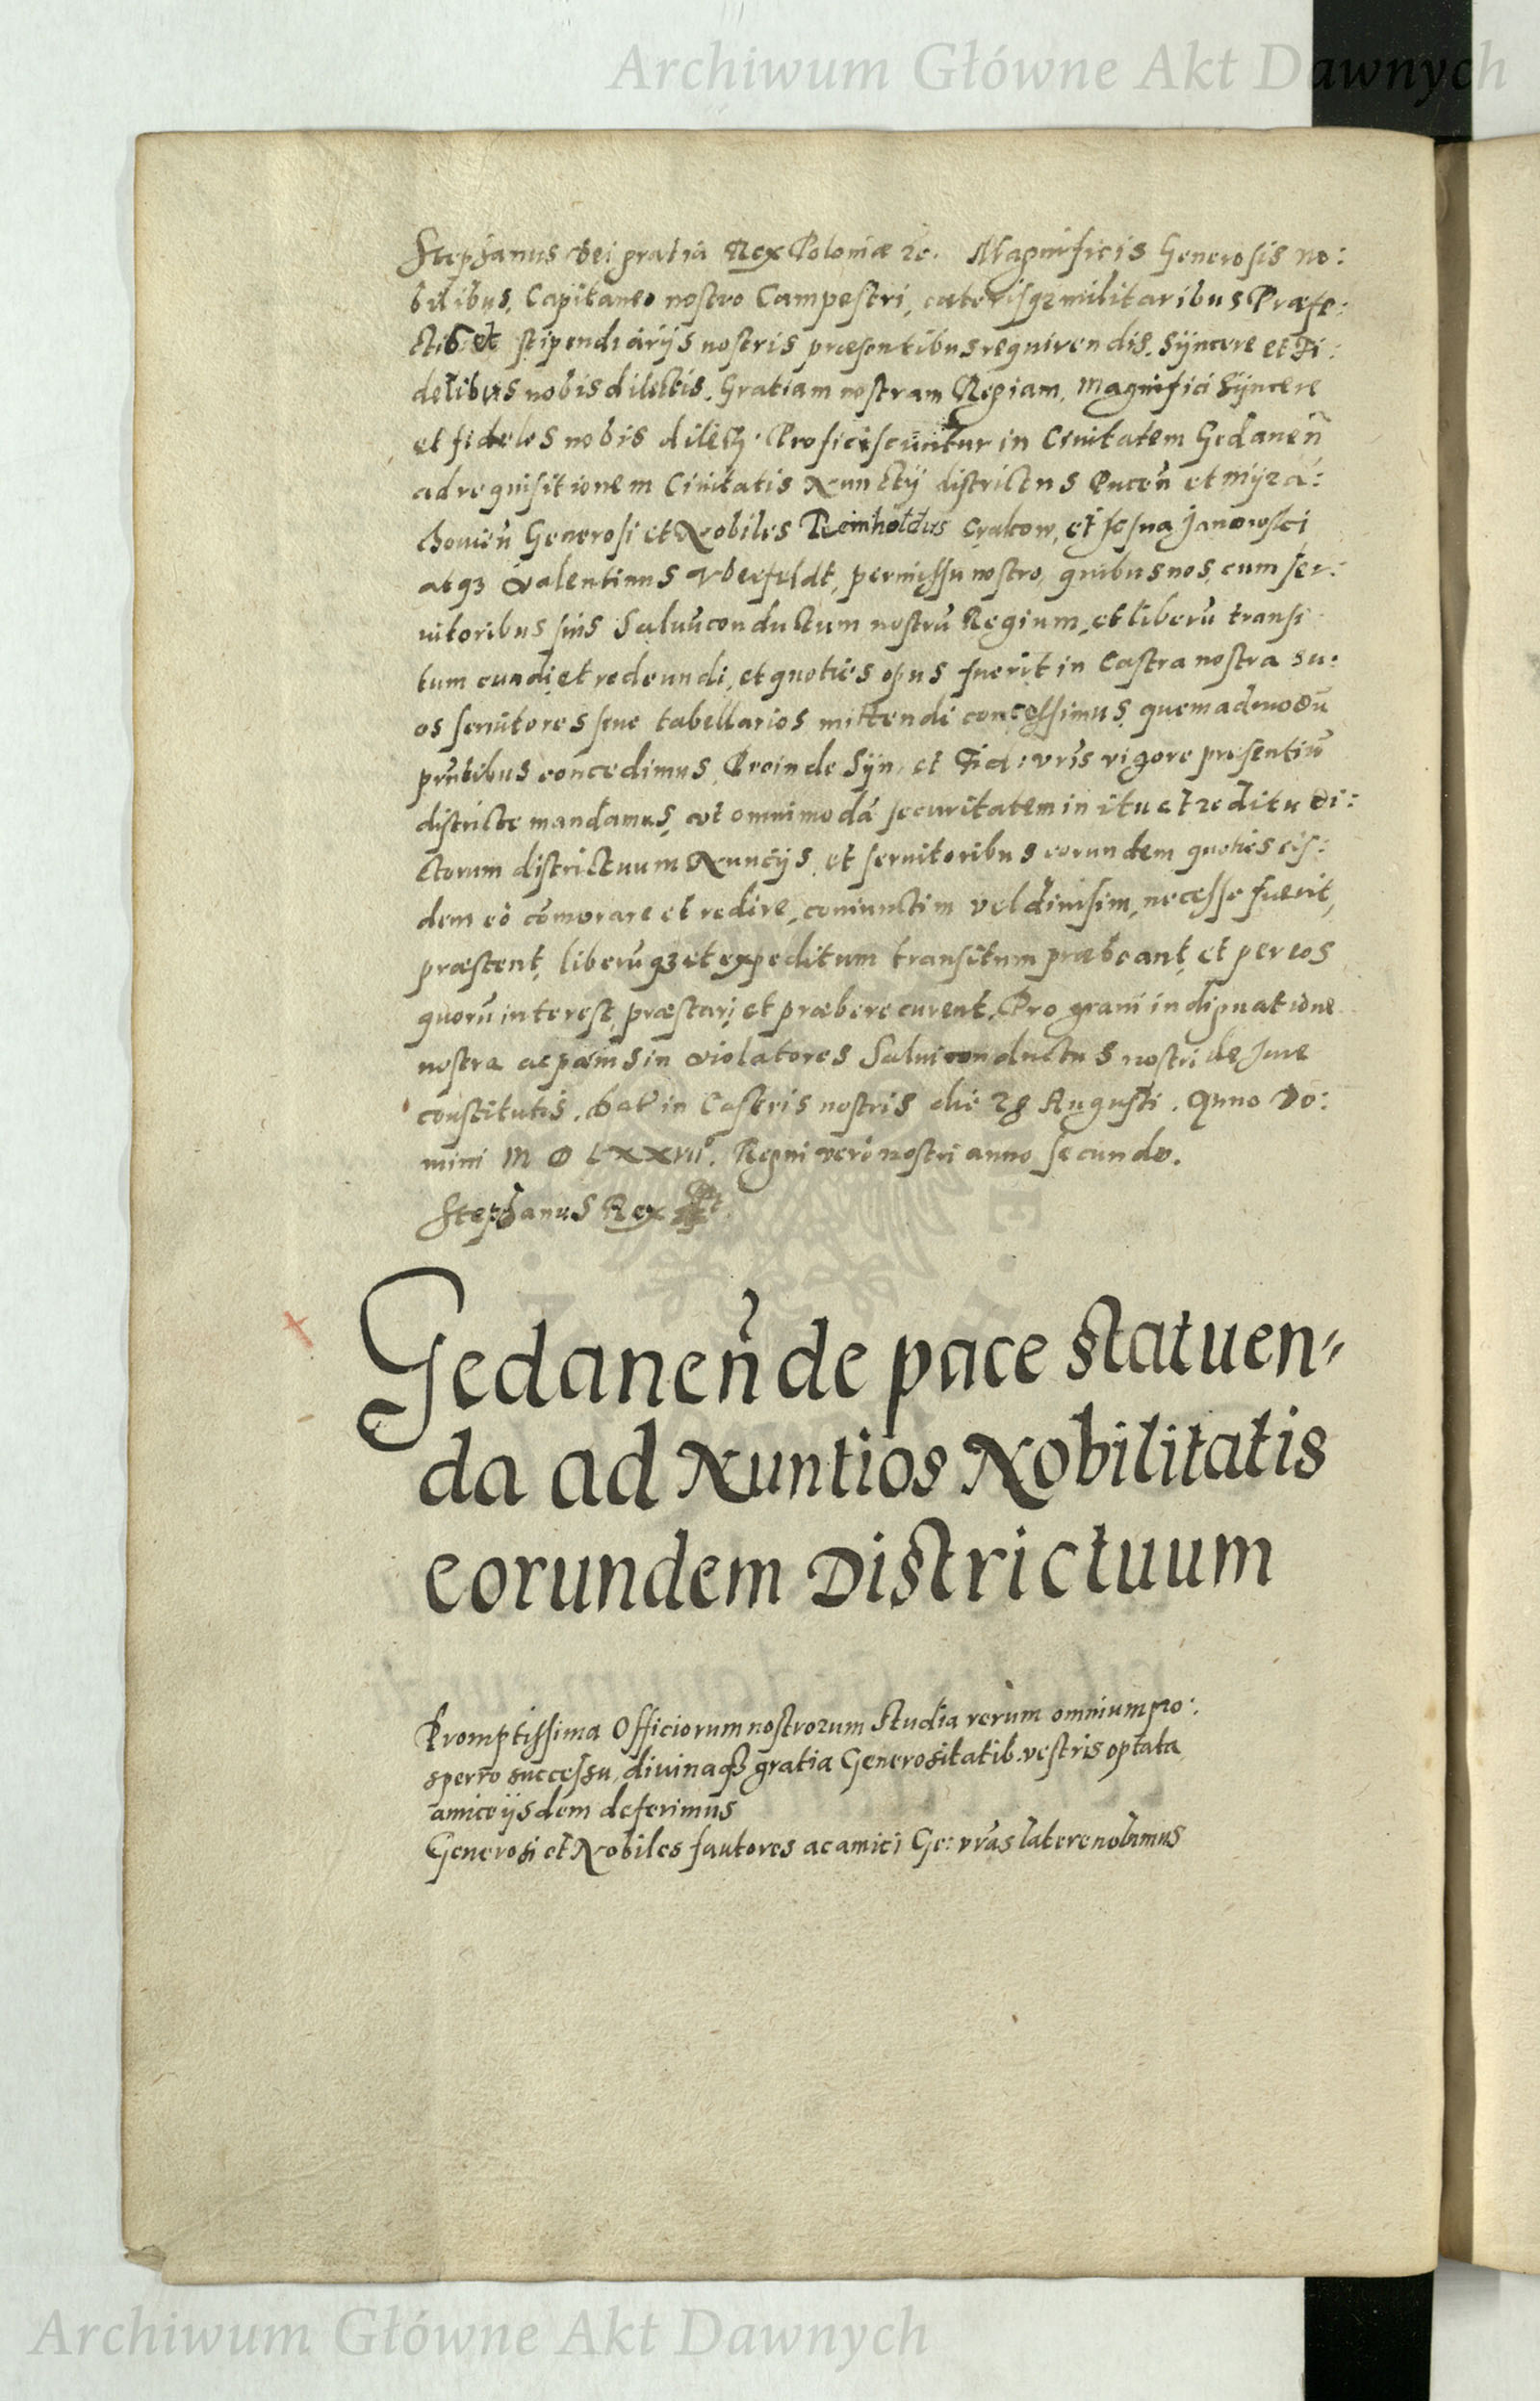 Archiwum Główne Akt Dawnych
Stephanus dei gratia Rex Poloniæ ꝛc. Magnificis Generosis no:
bilibus, Capitaneo nostro Campestri, cæterisqꝫ militaribus Præfe:
ctib: et stipendiarijs nostris præsentibus requirendis. Syncere et Fi:
delibus nobis dilectis. Gratiam nostram Regiam. Magnifici Syncere
et fideles nobis dilecti. Proficiscuntur in Ciuitatem Gedaneñ
ad requisitionem Ciuitatis Nunctij districtus Puceñ et Myrá:
chouieñ Generosi et Nobiles Reinholdus Crakow, et Josua Janowsci
atqꝫ Valentinus Vberfeldt, permissu nostro, quibus nos cum ser:
uitoribus suis Saluũconductum nostrũ Regium, et liberũ transi
tum eundi et redeundi, et quoties opus fuerit in Castra nostra su:
os seruitores siue tabellarios mittendi concessimus, quemadmodũ
prñtibus concedimus. Proinde Syn: et Fid: vris rigore presentiũ
districte mandamus, vt omnimodã securitatem in itu et reditu di:
ctorum districtuum Nuncijs et seruitoribus eorundem quoties eis:
dem eò com̃orare et redire, coniunctim vel diuisim, necesse fuerit,
præstent, liberũqꝫ et expeditum transitum præbeant, et per eos
quorũ interest, præstari et præbere curent. Pro graui indignatione
nostra ac pœnis in violatores Saluiconductus nostri de Jure
constitutis. Dat in Castris nostris die 28 Augusti. Anno Do:
mini M D LXXVII°. Regni vero nostri anno secundo.
Stephanus Rex
Gedaneñ de pace statuen-
da ad Nuntios Nobilitatis
eorundem Districtuum
Promptissima Officiorum nostrorum studia rerum omnium pro:
spero successu, diuinaqꝫ gratia Generositatib. vestris optata
amice ijsdem deferimus
Generosi et Nobiles fautores ac amici Ge: vras latere nolumus
Archiwum Główne Akt Dawnych